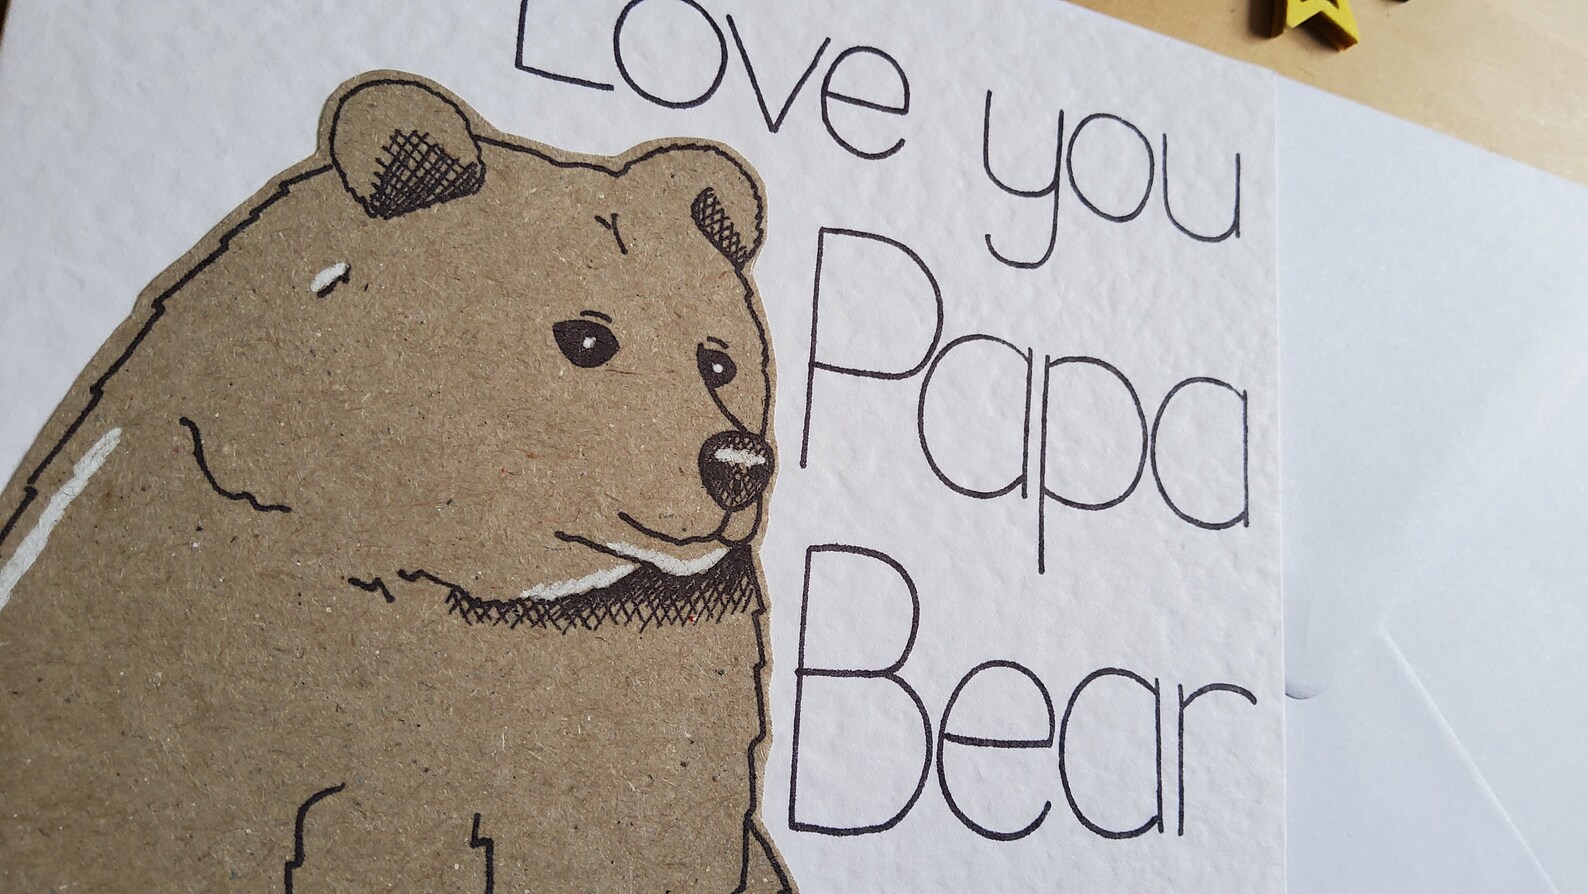 Love you
Papa
Bear